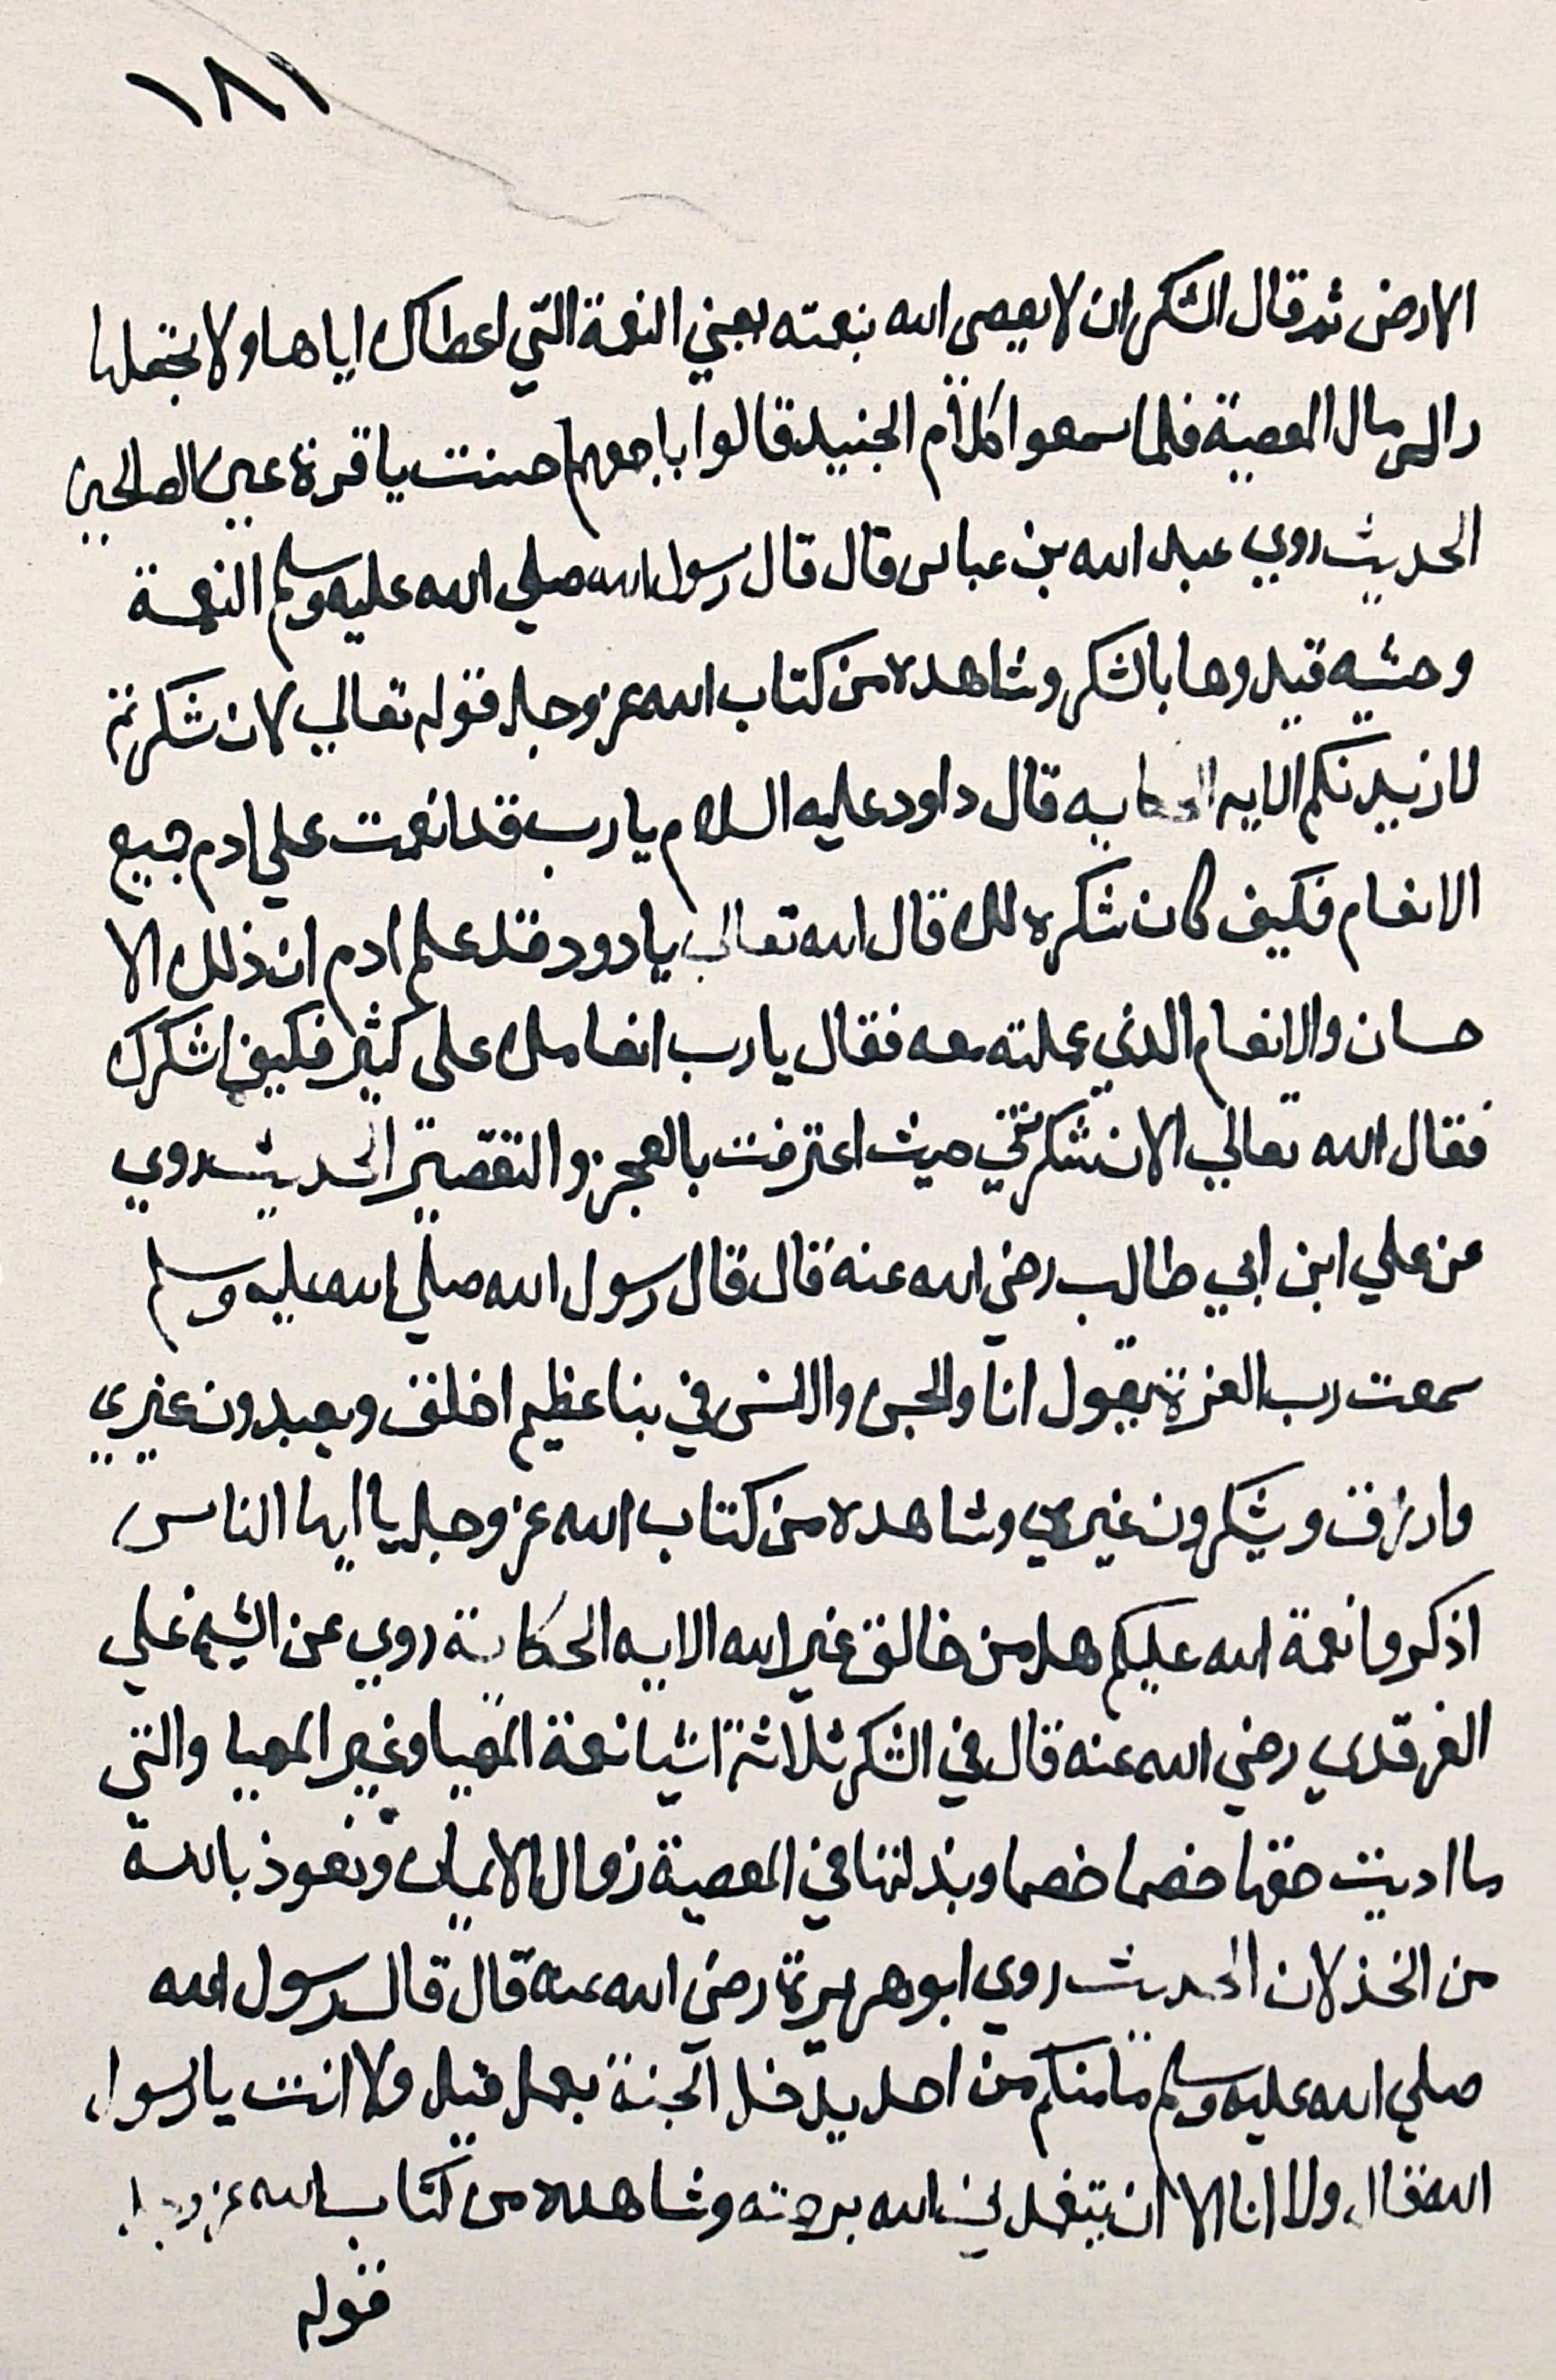 ١٨١
الارض ثم قال الشكر ان لا يعصى الله بنعمته يعني النعمة التي اعطاك اياها ولا تجعلها
راس مال المعصية فلما سمعوا كلام الجنيد قالوا باجمعهم احسنت يا قرة عين الصالحين
الحديث روي عبد الله بن عباس قال قال رسول الله صلي الله عليه وسلم النعمة
وحشيه قيدوها بالشكر وشاهده من كتاب الله عز وجل قوله تعالي لان شكرتم
لازيدنكم الايه الحكايه قال داود عليه السلام يا رب قد انعمت علي ادم جميع
الانعام فكيف كان شكره لك قال الله تعالي يا دود قد علم ادم ان ذلك الا
حسان والانعام الذي عملته معه فقال يا رب انعامك على كثير فكيف اشكرك
فقال الله تعالي الان شكرتني حيث اعترفت بالعجز والتقصير الحديث روي
عن علي ابن ابي طالب رضي الله عنه قال قال رسول الله صلي الله عليه وسلم
سمعت رب العزة يقول انا والجن والانس في بنا عظيم اخلق ويعبدون غيري
وارزق ويشكرون غيري وشاهده من كتاب الله عز وجل يا ايها الناس
اذكروا نعمة الله عليكم هل من خالق غير الله الايه الحكاية روي عن الشيخ علي
الغرقدي رضي الله عنه قال في الشكر ثلاثة اشيا نعمة المهيا وغير المهيا والتي
ما اديت حقها خصما خصما وبذلتها في المعصية زوال الايمان ونعوذ بالله
من الخذلان الحديث روي ابو هريرة رضي الله عنه قال قال رسول الله
صلي الله عليه وسلم ما منكم من احد يدخل الجنة بعمل قيل ولا انت يا رسول
الله فقال ولا انا الا ان يتغمدني الله برحمته وشاهده من كتاب الله عز وجل
قوله